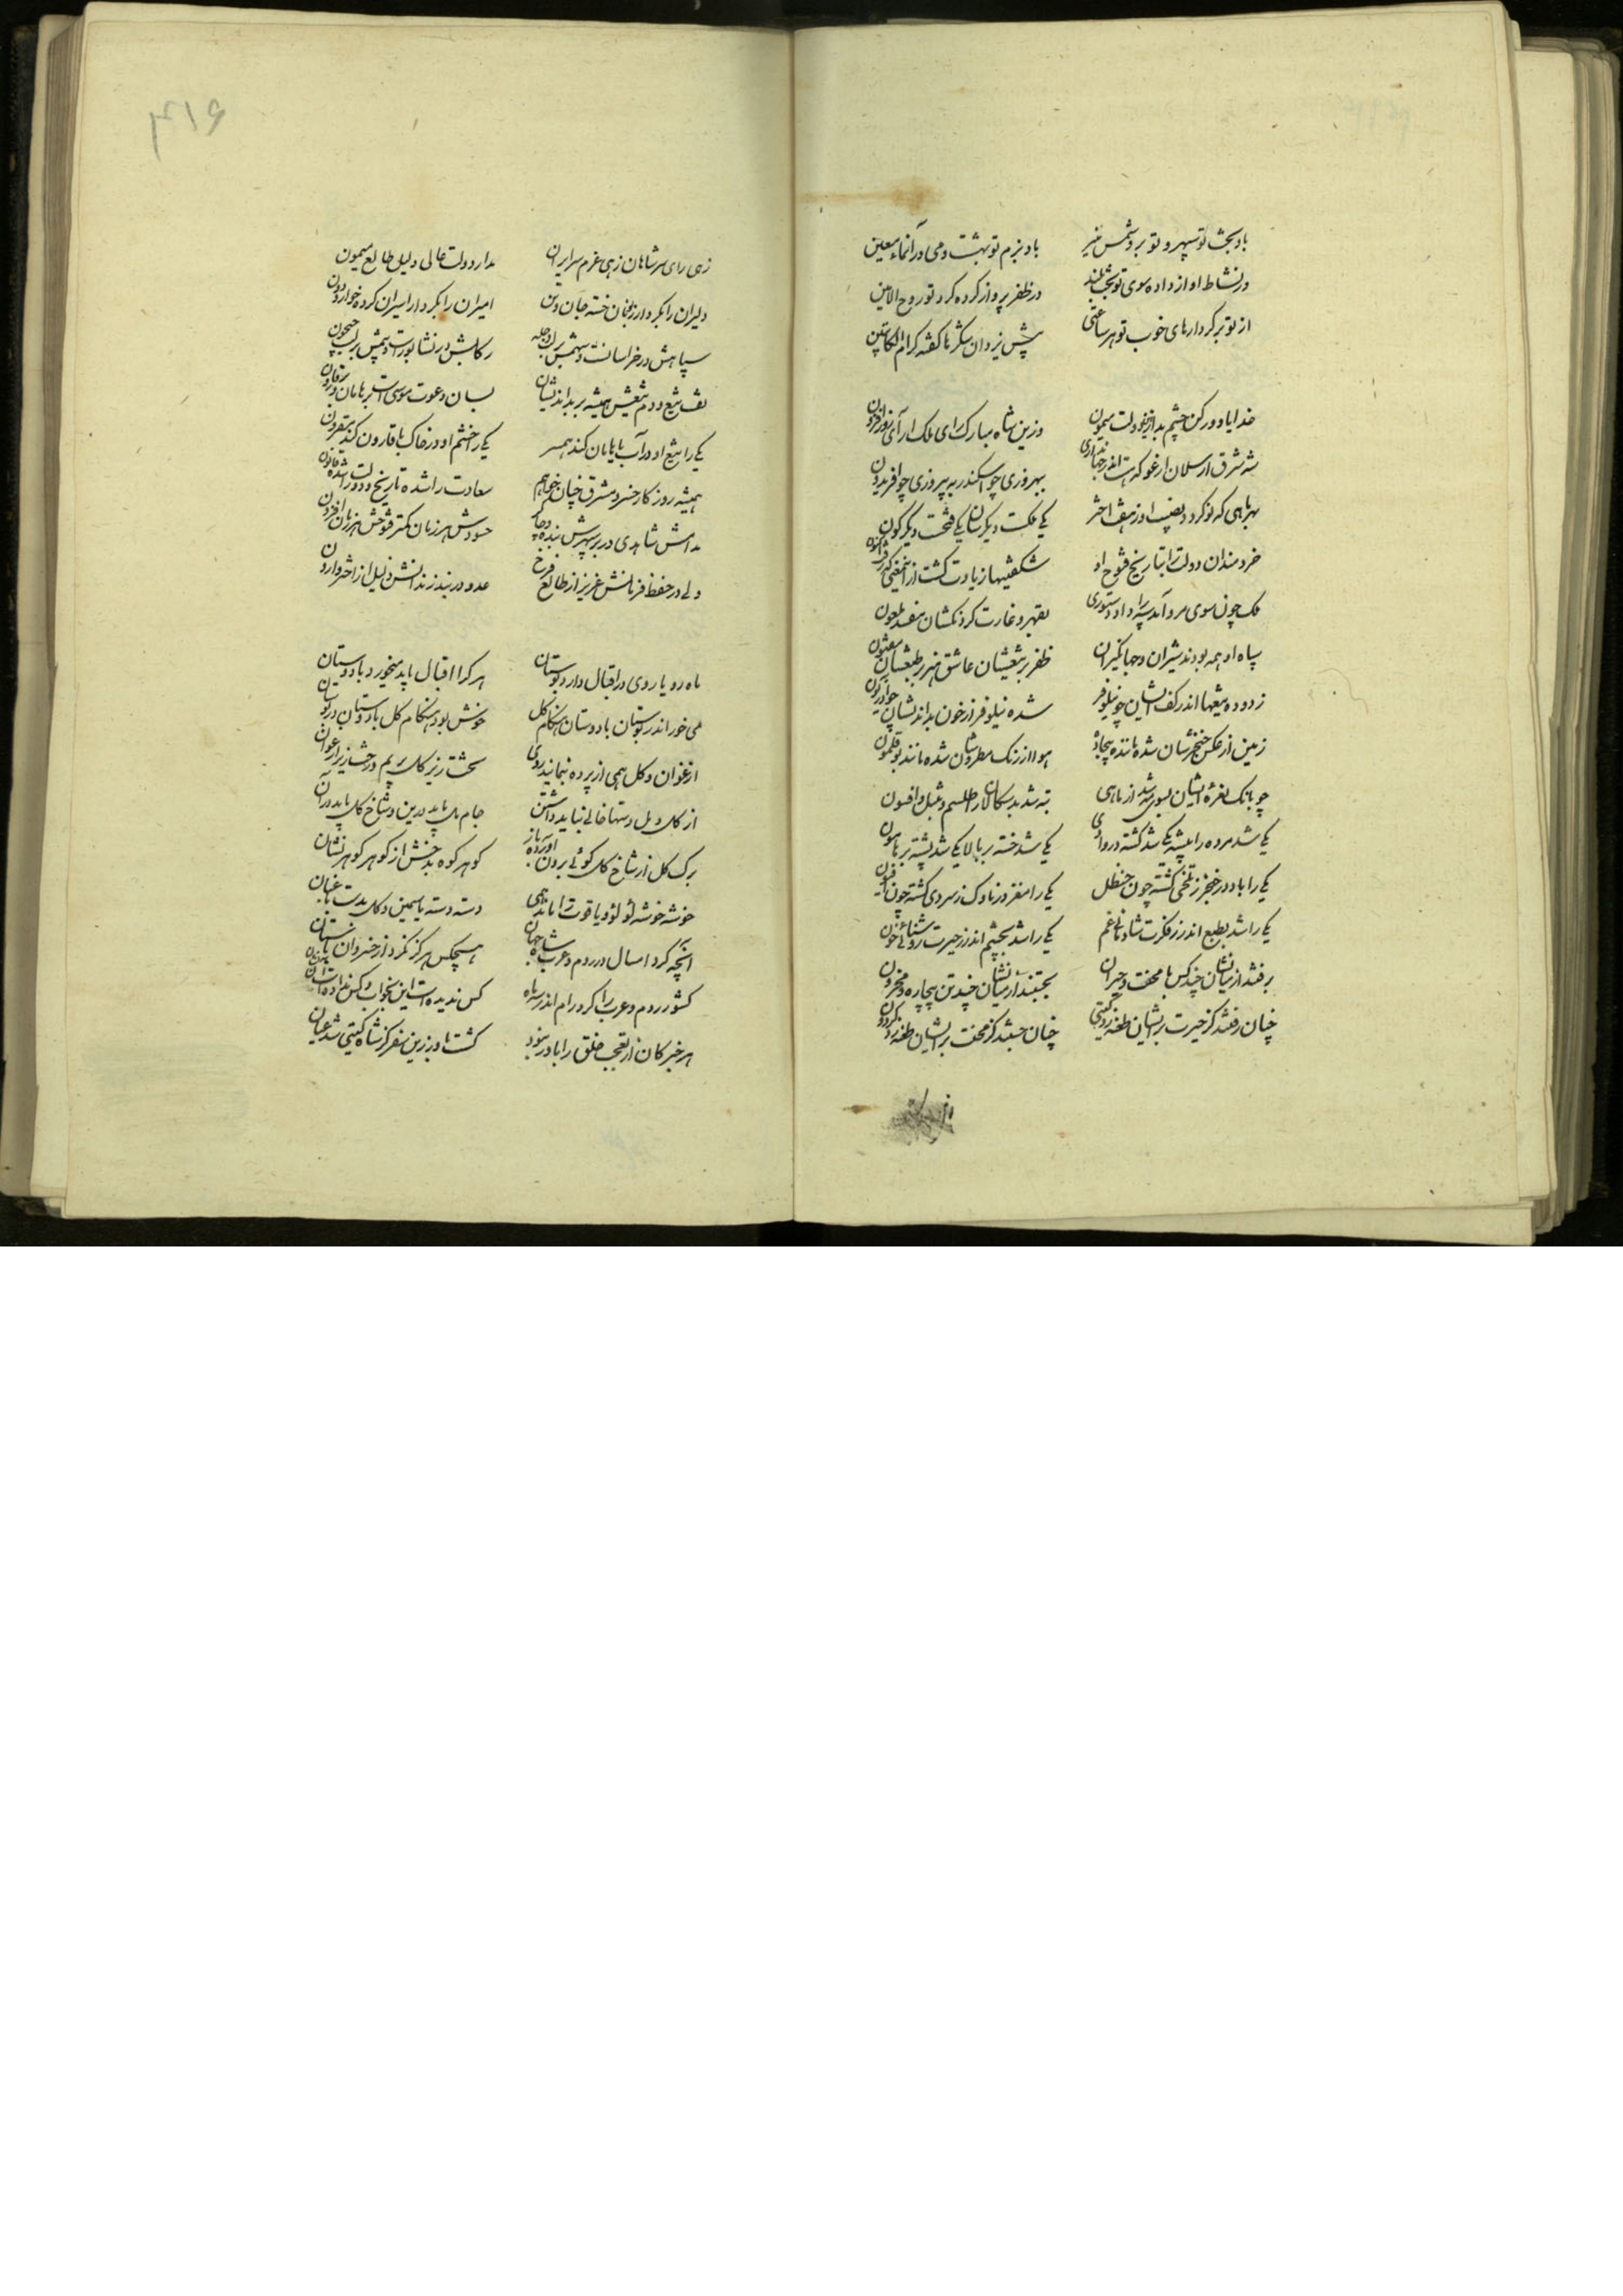 باد بخت تو سپهر و تو برو شمس منیر باد بزم تو بهشت و می در آن ماء معین
در نشاط آواز داده سوی تو بخت بلند در ظفر پرواز کرده گرد تو روح الامین
از تو بر کردارهای خوب تو هر ساعتی پیش یزدان شکرها گفته کرام الکاتبین
خدایا دور کن چشم بد از این دولت میمون وزین شاه مبارک رای ملک آرای روز افزون
شه شرق ارسلان ارغو که هست اندر جهانداری ببهروزی چو اسکندر به پیروزی چو افریدون
بهر ماهی که نو گردد نصیب او ز هفت اختر یکی ملکت دیگرسان یکی فتحست دیگرگون
خردمندان دولت را بتاریخ فتوح او شگفتیها زیادت گشت از این فتحی که کرد اکنون
ملک چون سوی مرو آمد سپه را داد دستوری بقهر و غارت کردنکشان مفسد ملعون
سپاه او همه بودند شیران و جهانگیران ظفر بر تیغشان عاشق هنر بر طبعشان مفتون
زدوده تیغها اندر کف ایشان چو نیلوفر شده نیلوفر از خون بداندیشان چو آذریون
زمین از عکس خنجرشان شده ماننده بیجاده هوا از رنگ مطردشان شده مانند بوقلمون
چو بانگ نعره ایشان بسوی مه شد از ماهی تبه شد بدسگالان را طلسم و تنبل و افسون
یکی شد مرده در بیشه یکی شد کشته در وادی یکی شد خسته بر بالا یکی شد پشته بر هامون
یکی را باده در خنجر ز تلخی گشته چون حنظل یکی را مغز در تارک ز سردی گشته چون افیون
یکی را شد بطبع اندر ز فکرت شادمانی غم یکی را شد بچشم اندر ز حیرت روشنائی خون
برفتند از میانشان چند کس با محنت و حیران بجستند از میانشان چند تن بیچاره و محزون
چنان رفتند کز حیرت بر ایشان طعنه زد گیتی چنان جستند کز محنت بر ایشان طعنه زد گردون
۴۱۶
زهی رای سر شاهان زهی عزم سر ایران مدار دولت عالی دلیل طالع میمون
دلیران را بکردار زنان خسته جان و تن امیران را بکردار اسیران کرده خوار و دون
سپاهش در خراسانست و سهمش بر لب دجله رکابش در نشابورست و تیمش بر لب جیحون
تف تیغ و دم تیغش همیشه بر بداندیشان بسان دعوت موسی است بر هامان و بر قارون
یکی را تیغ او در آب با هامان کند همسر یکی را خشم او در خاک با قارون کند مقرون
همیشه روزگار خسرو مشرق چنان خواهم سعادت را شده تاریخ و دولت را شده قانون
مدامش شاهدی در بر سپهرش بنده و چاکر حسودش هر زمان کمتر فتوحش هر زمان افزون
ولی در حفظ فرمانش عزیز از طالع فرخ عدو در بند زندانش ذلیل از اختر وارون
ماه رویا روی در اقبال دارد بوستان هر کرا اقبال باید می خورد با دوستان
می خور اندر بوستان با دوستان هنگام گل خوش بود هنگام گل با دوستان در بوستان
ارغوان و گل همی از پرده بنمایند روی تخت زیر گل بریم و رخت زیر ارغوان
از گل و مل دستها خالی نباید داشتن جام مل باید درین و شاخ گل باید در آن
برگ گل از شاخ گل گوئی برون آورده باز گوهر کوه بدخش از گوهر گوهر نشان
خوشه خوشه لؤلؤ و یاقوت را ماند همی دسته دسته یاسمین و گل بدست باغبان
آنچه کرد امسال در روم و عرب شاه جهان هیچکس هرگز نکرد از خسروان باستان
کشور روم و عرب را کرد رام اندر سه ماه کس ندیده است این بخواب و کس نداده است این نشان
هر خبر کان از تعجب خلق را باور نبود گشت باور زین سفر کز شاه گیتی شد عیان